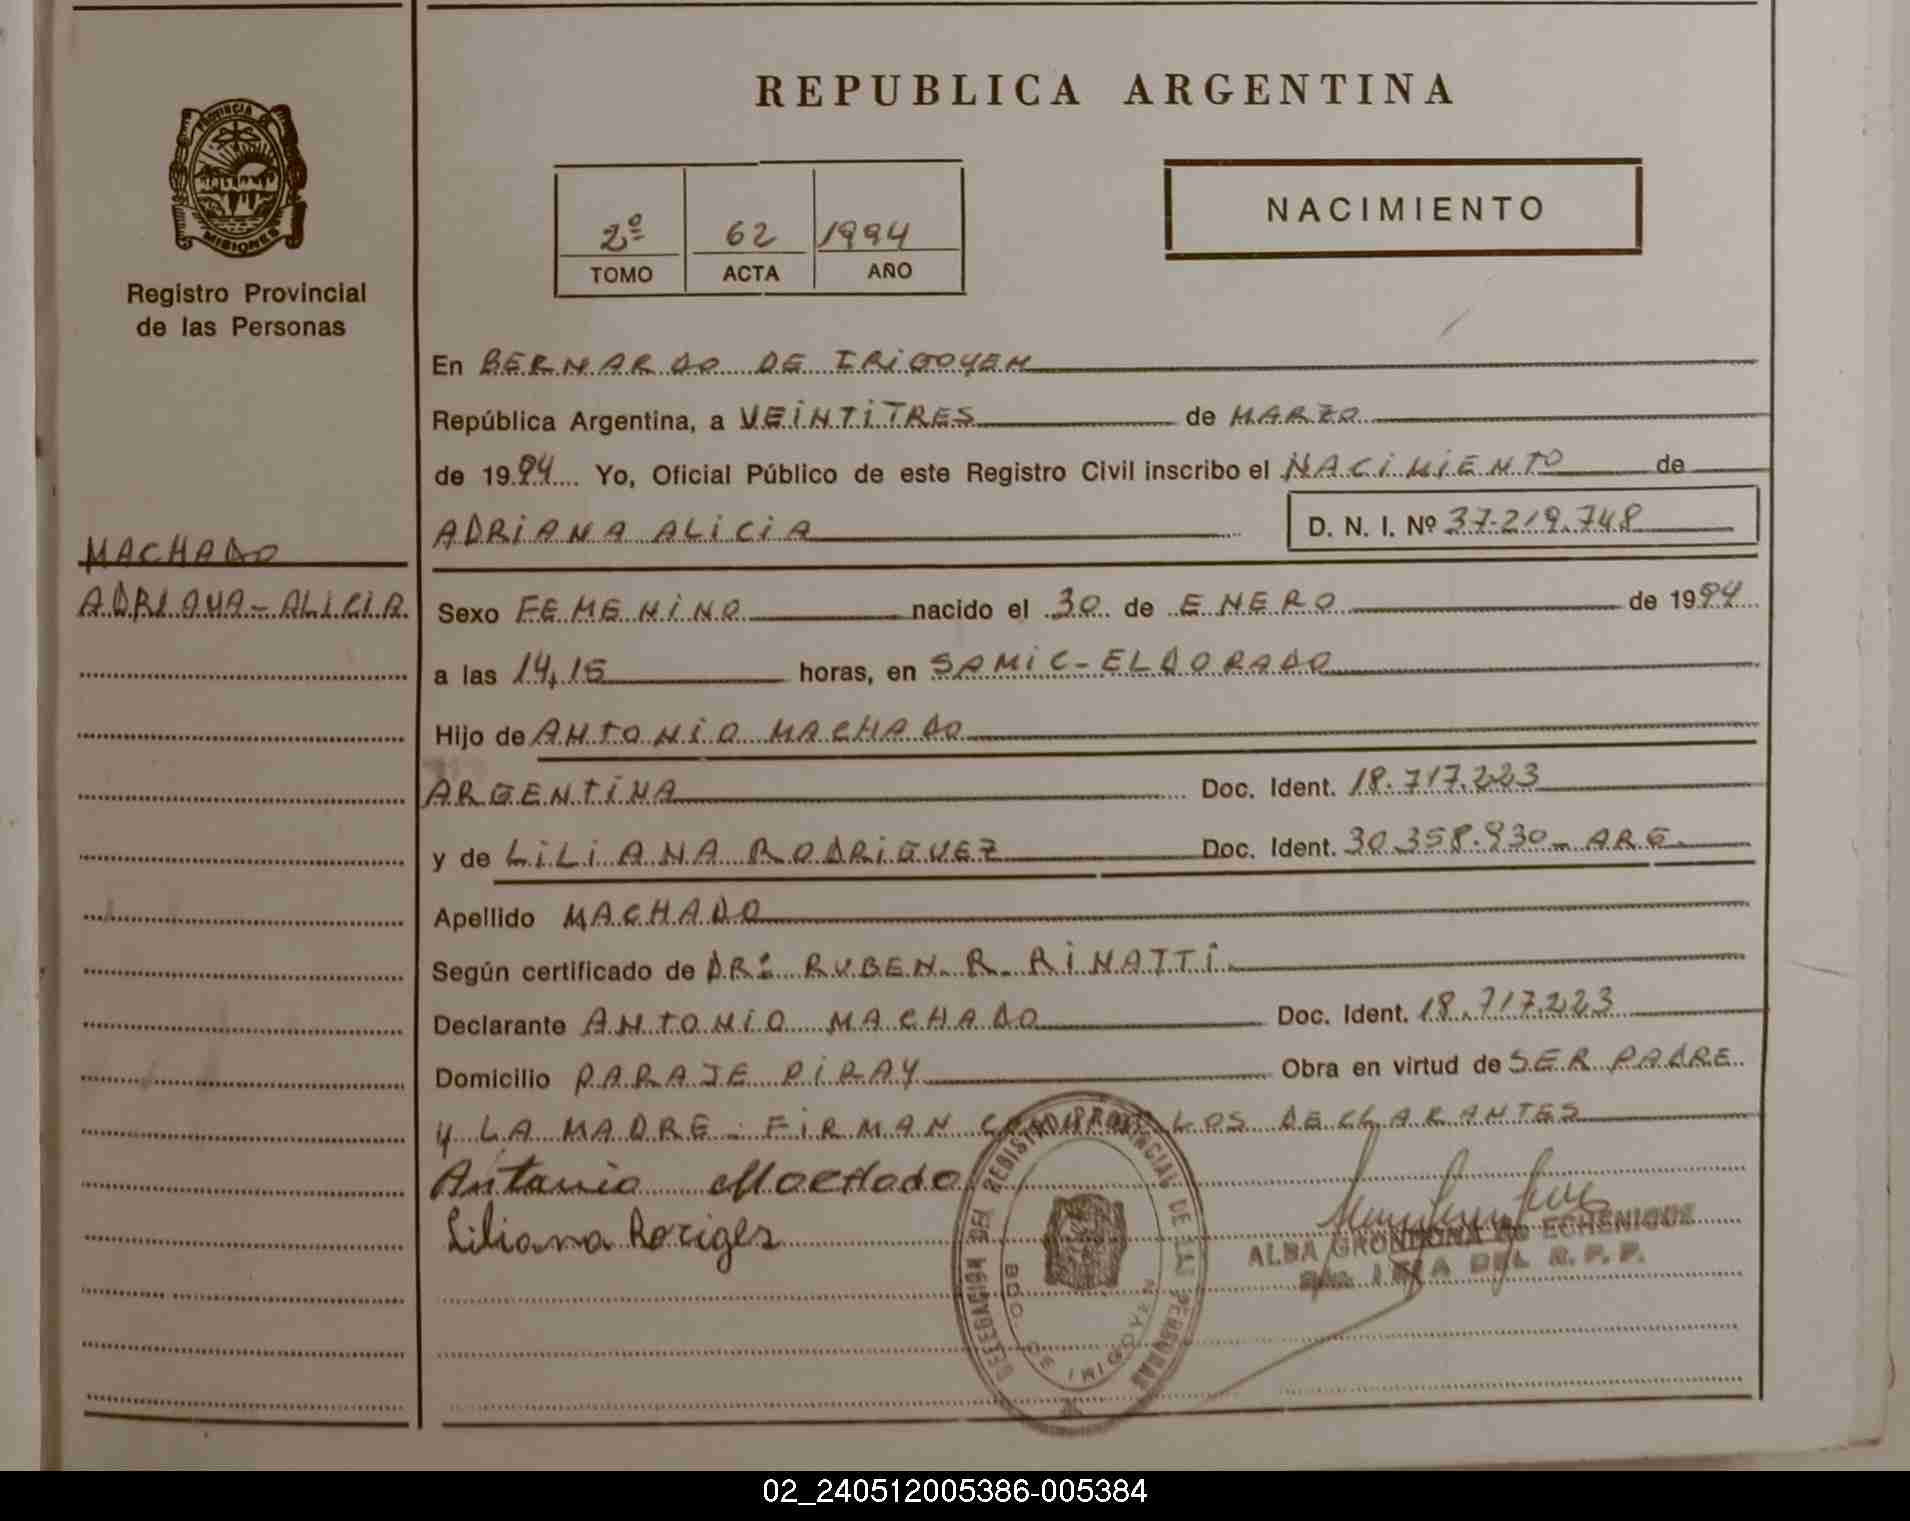 REPUBLICA ARGENTINA
PROVINCIA DE
MISIONES
Registro Provincial
de las Personas
2º 62 1994
TOMO ACTA AÑO
NACIMIENTO
En BERNARDO DE IRIGOYEN
República Argentina, a VEINTITRES de MARZO
de 1994 Yo, Oficial Público de este Registro Civil inscribo el NACIMIENTO de
ADRIANA ALICIA D. N. I. Nº 37.219.748
MACHADO
ADRIANA-ALICIA
Sexo FEMENINO nacido el 30 de ENERO de 1994
a las 14,15 horas, en SAMIC-ELDORADO
Hijo de ANTONIO MACHADO
ARGENTINA Doc. Ident. 18.717.223
y de LILIANA RODRIGUEZ Doc. Ident. 30.358.930- ARG.
Apellido MACHADO
Según certificado de DR: RUBEN. R. RINATTI.
Declarante ANTONIO MACHADO Doc. Ident. 18.717.223
Domicilio PARAJE PIRAY Obra en virtud de SER PADRE
Y LA MADRE - FIRMAN LOS DECLARANTES
Antonio Machado
Liliana Roriges
DELEGACION DEL REGISTRO PROVINCIAL DE LAS PERSONAS
BDO. DE IRIGOYEN
ALBA GRONDONA DE ECHENIQUE
DEL R. P. P.
02_240512005386-005384